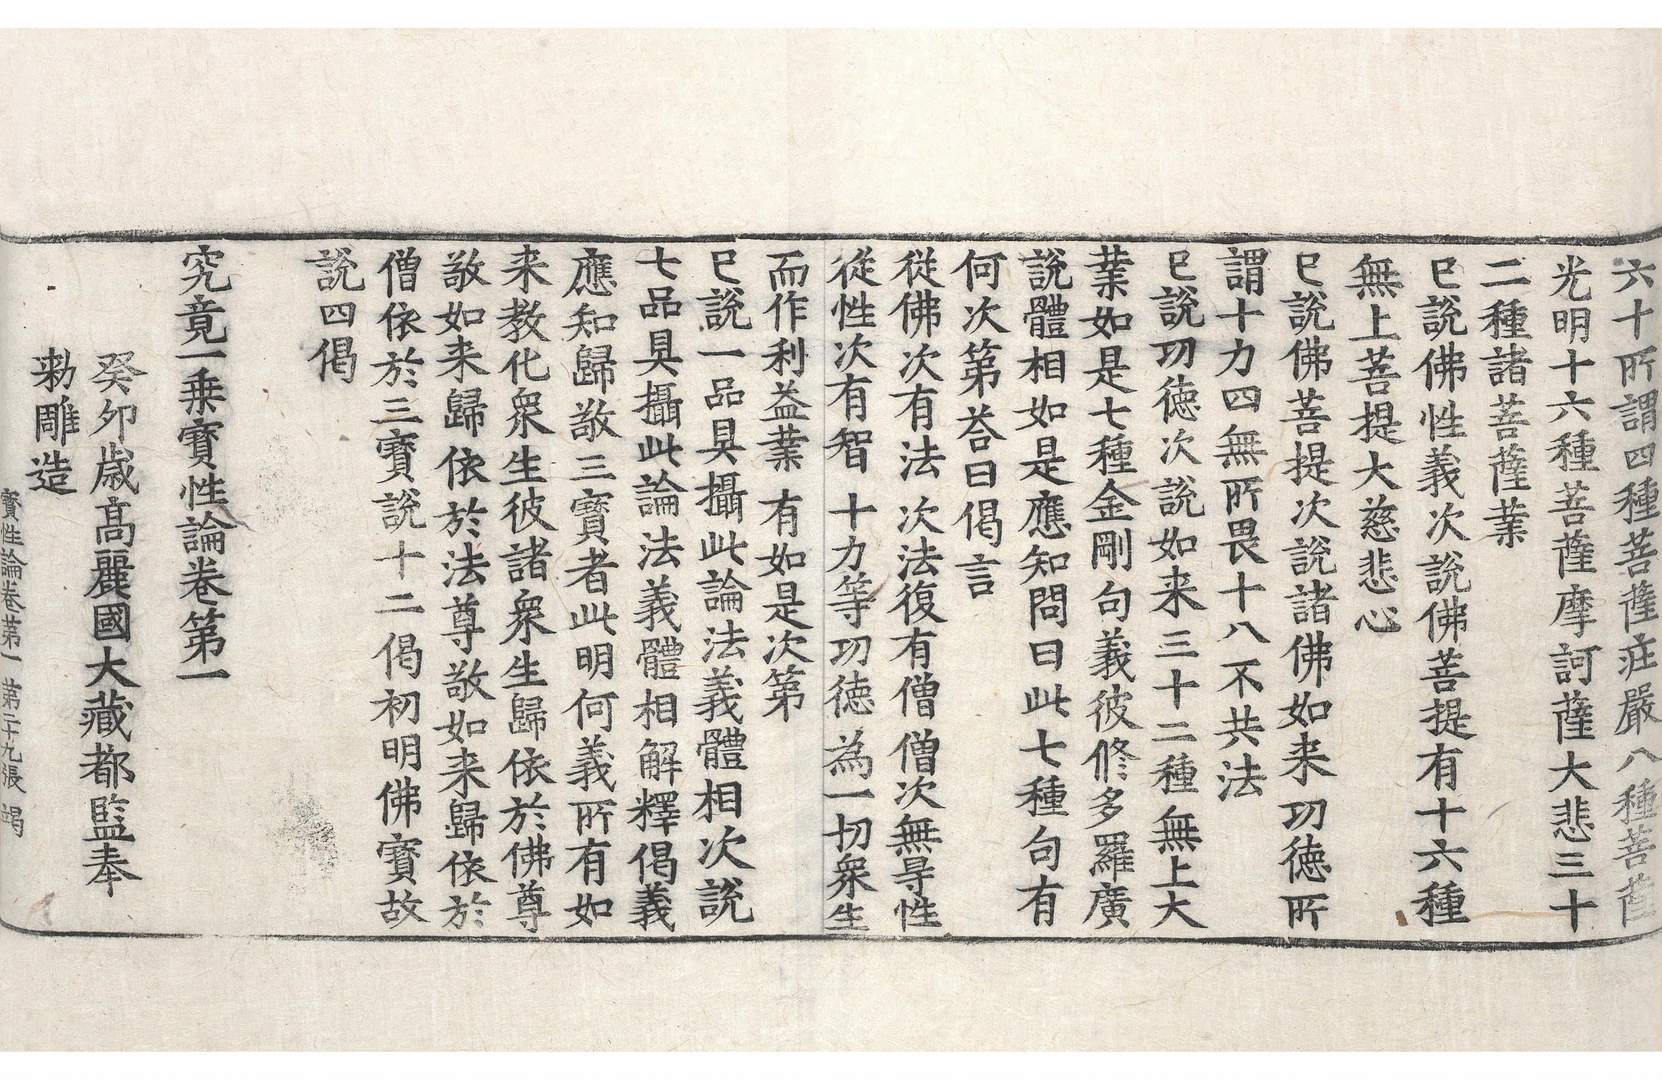 六十所謂四種菩薩莊嚴八種菩薩
光明十六種菩薩摩訶薩大悲三十
二種諸菩薩業
已說佛性義次說佛菩提有十六種
無上菩提大慈悲心
已說佛菩提次說諸佛如来功徳所
謂十力四無所畏十八不共法
已說功徳次說如来三十二種無上大
業如是七種金剛句義彼修多羅廣
說體相如是應知問曰此七種句有
何次第荅曰偈言
從佛次有法 次法復有僧 僧次無㝵性
從性次有智 十力等功徳 為一切衆生
而作利益業 有如是次第
已說一品具攝此論法義體相次說
七品具攝此論法義體相解釋偈義
應知歸敬三寶者此明何義所有如
来教化衆生彼諸衆生歸依於佛尊
敬如来歸依於法尊敬如来歸依於
僧依於三寶說十二偈初明佛寶故
說四偈
究竟一乗寶性論卷第一
癸夘歳髙麗國大藏都監奉
勑雕造
寶性論卷第一 第二十九張 竭